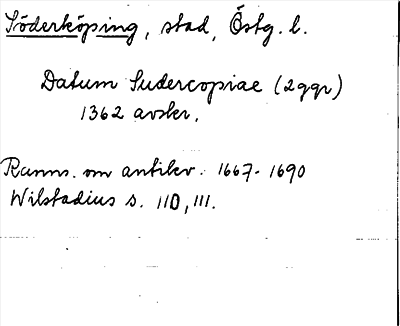 Söderköping, stad, Östg. l.
Datum Sudercopiae (2ggr)
1362 avskr.
Ranns. om antikv. 1667-1690
Wilstadius s. 110, 111.